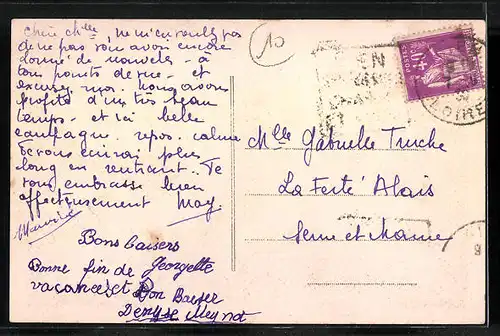 chère Mlle, ne m'en veuillez pas
de ne pas vous avoir encore
donné de nouvelles - à
tous points de vue - et
excusez moi. Nous avons
profité d'un très beau
temps - et si belle
campagne. repos. calme
Je vous écrirai plus
long en rentrant.. Je
vous embrasse bien
affectueusement May.
Bons baisers
Georgette
Bonne fin de
vacances et Bon Baiser
Denyse Meynot
10
Mlle Gabrielle Truche
La Ferté Alais
Seine et Marne
EN
LOIRE